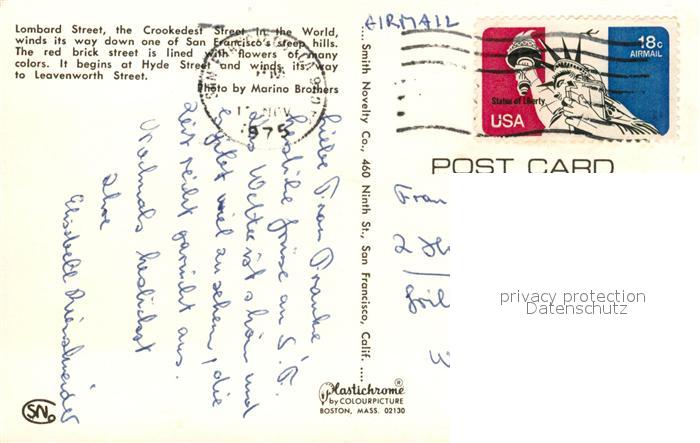 Lombard Street, the Crookedest Street in the World,
winds its way down one of San Francisco's steep hills.
The red brick street is lined with flowers of many
colors. It begins at Hyde Street and winds its way
to Leavenworth Street.
Photo by Marino Brothers
NOV
1975
AIRMAIL
18c
AIRMAIL
Statue of Liberty
USA
POST CARD
Liebe Frau Franke,
herzliche Grüsse aus S.F.
Das Wetter ist schön und
es gibt viel zu sehen, die
Zeit reicht garnicht aus.
Nochmals herzlichst
Ihre
Elisabeth
Smith Novelty Co., 460 Ninth St., San Francisco, Calif.
Frau
2
privacy protection
Datenschutz
Plastichrome ®
by COLOURPICTURE
BOSTON, MASS. 02130
SN